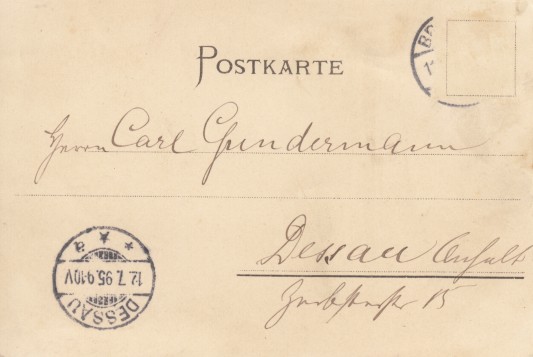 POSTKARTE
Herrn Carl Gundermann
Dessau Anhalt
Zerbsterstr 15
DESSAU
12.7.95.9-10V
* * a